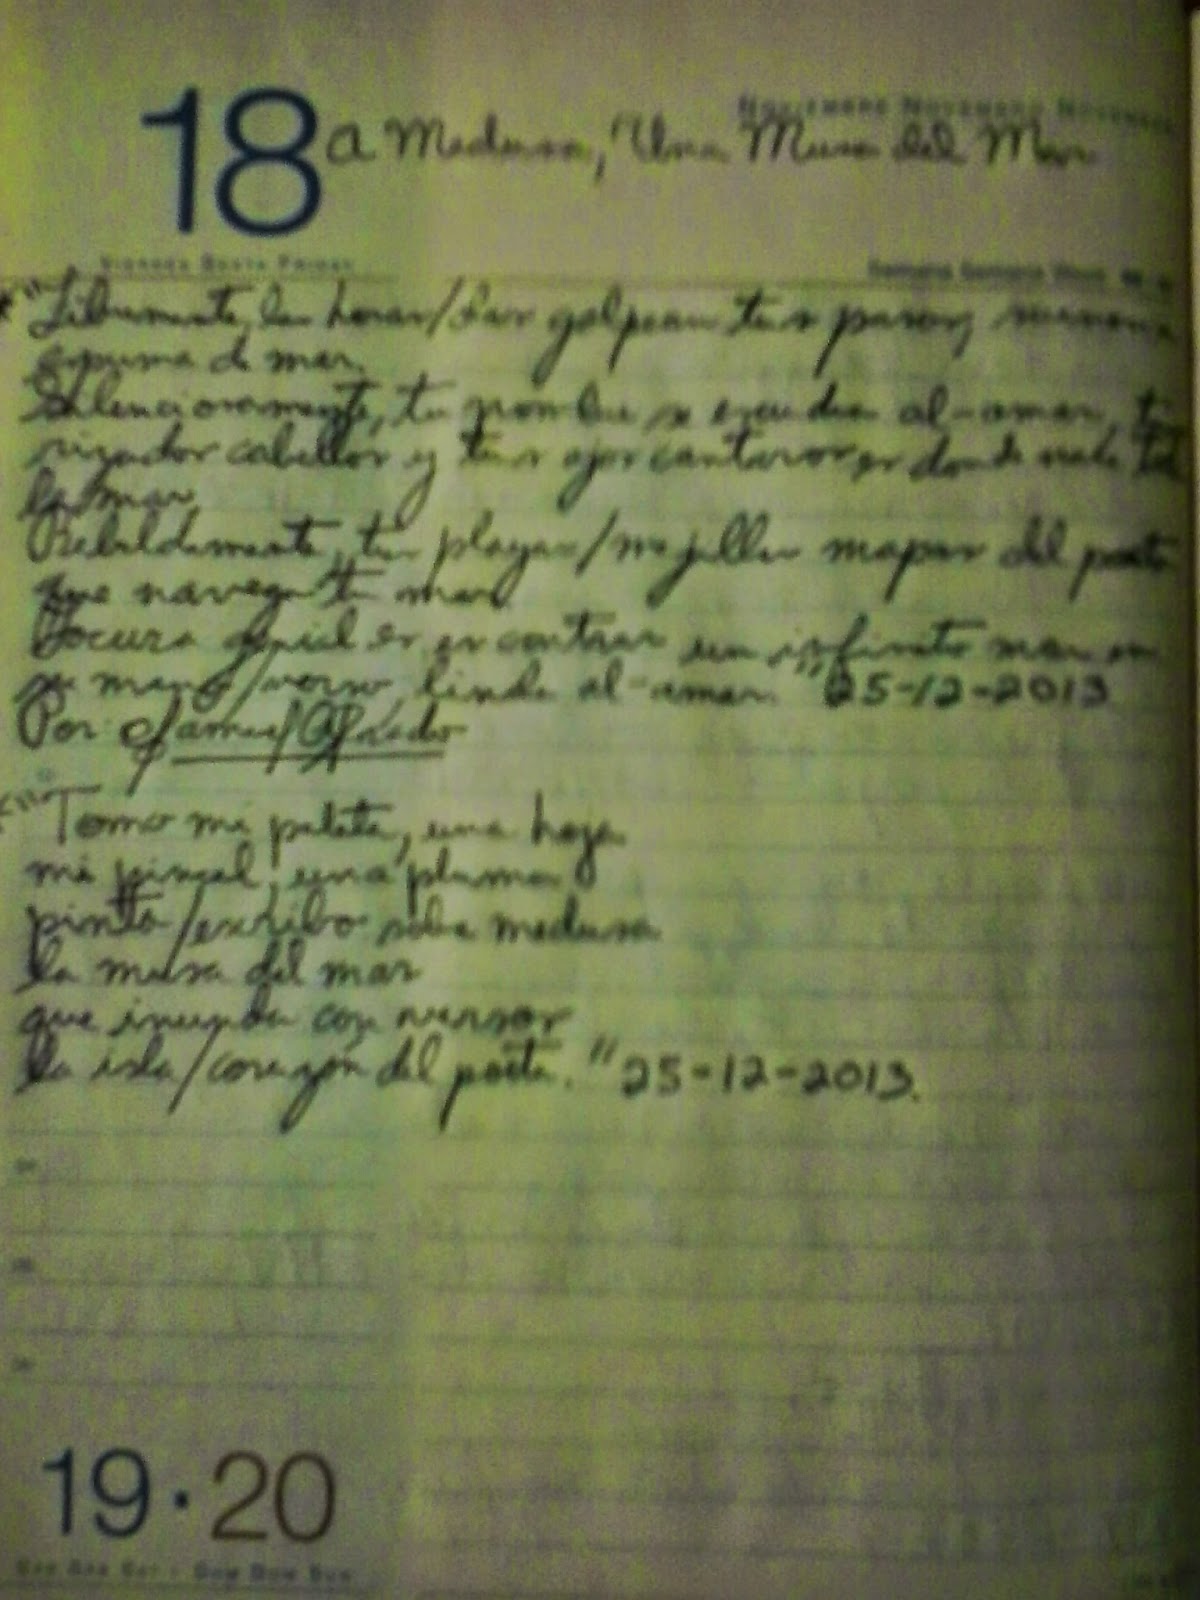 18
NOVIEMBRE NOVEMBRO NOVEMBER
A Medusa, "Una Musa del Mar
VIERNES SEXTA FRIDAY
Semana Semana Week
"Libremente, las horas/olas golpean tus pasos,
espuma de mar.
Silenciosamente, tu nombre se escucha al-amar, tu
rizador cabellos y tus ojos cantaros es donde nada
la mar.
Rebeldemente, tus playas/mejillas mapas del poeta
que navega tu mar.
Locura genial es encontrar un infinito mar en
su mano/verso, linda al-amar." 25-12-2013
Por: James
"Tomo mi paleta, una hoja
mi pincel, una pluma y
pinto/escribo sobre medusa
la musa del mar
que inunda con versos
la isla/corazón del poeta." 25-12-2013.
19·20
SAB SAB SAT · DOM DOM SUN